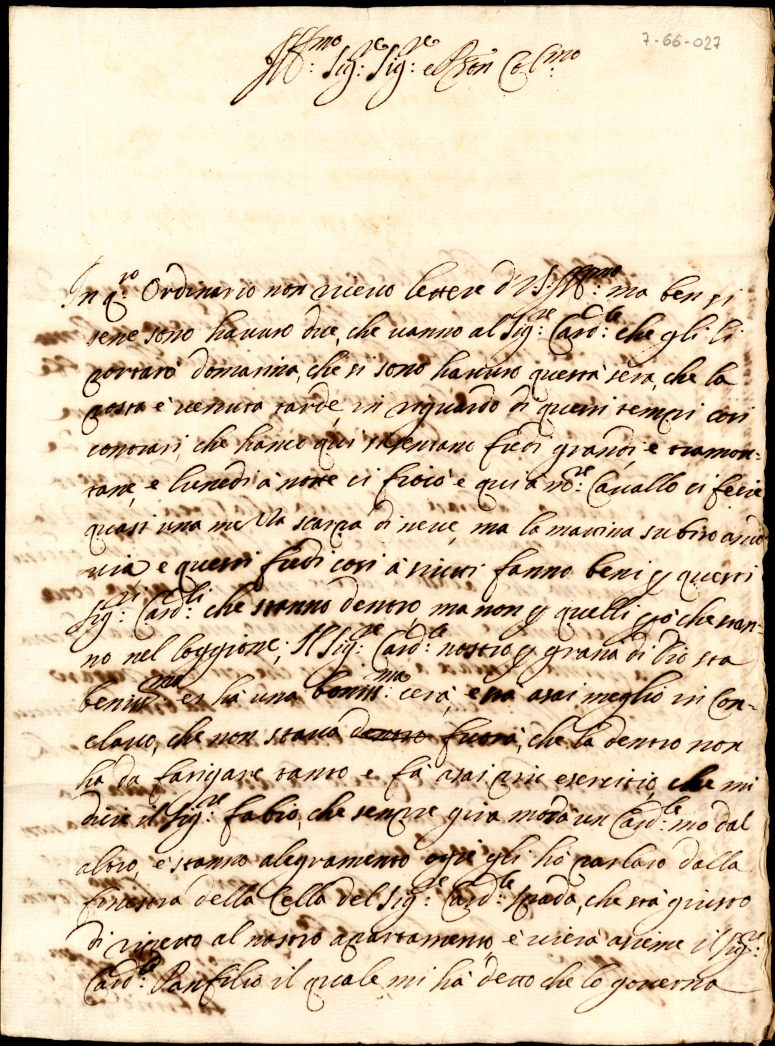 7-66-027
Ill:mo Sig:re Sig:re e Pron Col:mo
In q:ro Ordinario non ricevo lettere d'V.S. Ill:ma ma ben si
sene sono havute due, che vanno al Sig:re Card:le che gli li
portarò domatina, che si sono havute questa sera, che la
posta è venuta tarde, in riguardo di questi tempi così
contrari, che hanco qui si sentano fredi grandi, e tramon-
tane, e lunedi à notte ci fiocò e qui à m:te Cavallo ci fecie
quasi una mezza scarpa di neve, ma la mattina subito andò
via, e questi fredi così asciuti fanno beni p questi
Sig:ri Card:li che stanno dentro, ma non p quelli pò che stan-
no nel loggione; Il Sig:re Card:le nostro p gratia di Dio sta
beniss:mo et hà una boniss:ma cera, e stà asai meglio in Con-
clavo, che non stava dentro fuora, che la dentro non
hà da fatigare tanto e fà asai più esercitio, che mi
dicie il Sig:re Fabio, che sempre gira mo da un Card:le mo dal
altro, e stanno alegramente ogie gli hò parlato dalla
finestra della Cella del Sig:re Card:le Spada, che stà giusto
di rimpetto al nostro apartamento, e viera asieme il Sig:re
Card:le Panfilio il quale mi hà detto che lo governa